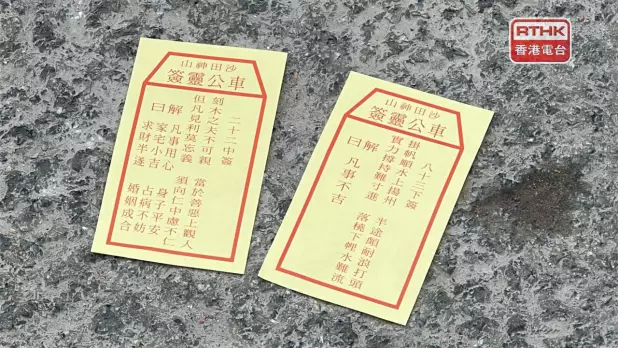 RTHK
香港電台
沙田神山
車公靈簽
二十二中簽
刻木之夫不可親 當於善惡上觀人
但凡見利莫忘義 須向仁中處不仁
解 凡事用心 身子平安
曰 家宅小吉 占病不妨
求財半遂 婚姻成合
沙田神山
車公靈簽
八十三下簽
掛帆順水上揚州 半途頗耐浪打頭
實力撐持難寸進 落橈下水難流
解
曰 凡事不吉